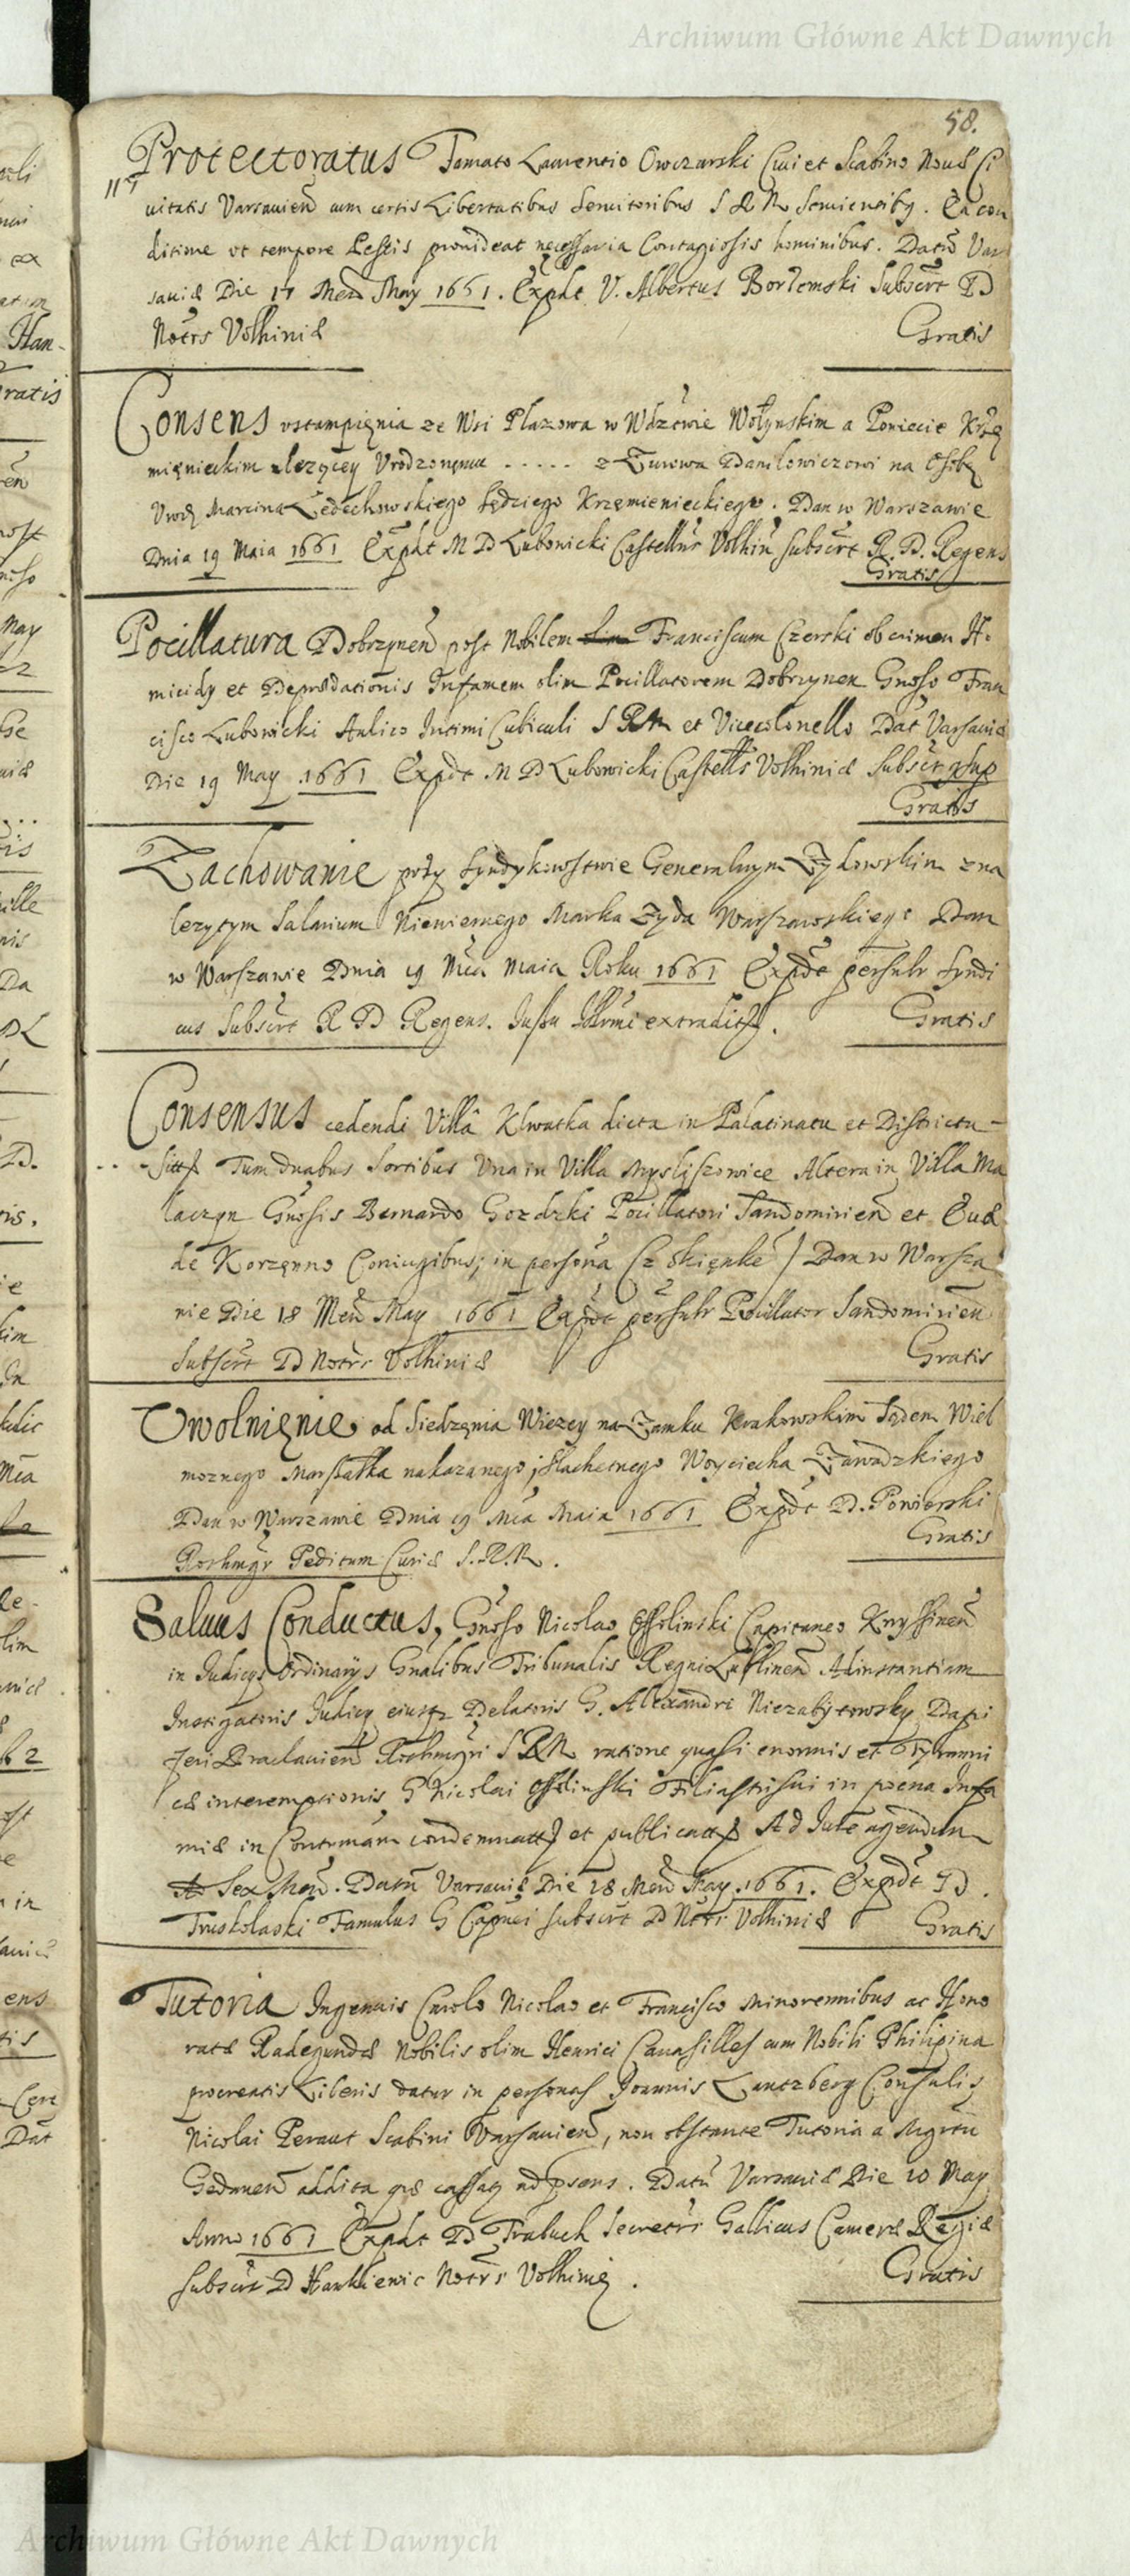 Archiwum Główne Akt Dawnych
58.
Protectoratus Famato Laurentio Owczarski Civi et Scabino Nouæ Ci
uitatis Varsauien cum certis Libertatibus Seruitoribus S R M Seruientiby. Ea con
ditione ut tempore Pestis prouideat necessaria Contagiosis hominibus. Datũ Var
sauiæ Die 17 Men May 1661. Expdt V. Albertus Borzemski Subscrt D
Notrs Volhiniæ Gratis
Consens vstąmpięnia ze Wsi Plazowa w Wdztwie Wołynskim a Powiecie Krzę
mięnieckim lezącey Vrodzonęmu ..... z Zurowa Daniłowiczowi na Osobę
Vrodz Marcina Ledochowskiego Sędziego Krzęmienieckiego. Dan w Warszawie
Dnia 19 Maia 1661 Expdt M D Lubowicki Castellns Volhin Subscrt R. D. Regens
Gratis
Pocillatura Dobrzynen post Nobilem Franciscum Czerski ob crimen Ho
micidy et Deprædationis Infamem olim Pocillatorem Dobrzynen Gnoso Fran
cisco Lubowicki Aulico Intimi Cubiculi S R M et Vicecolonello Dat Varsauiæ
Die 19 May 1661 Expdt M D Lubowicki Castells Volhiniæ Subscrt qsup
Gratis
Zachowanie przy Syndykowstwie Generalnym Zydowskim z na
lezytym Salarium Niewiernego Marka Zyda Warszawskiego Dan
w Warszawie Dnia 19 Mca Maia Roku 1661 Expdt persnlr Syndi
cus Subscrt R D Regens. Jussu Illrmi extradit. Gratis
Consensus cedendi Villâ Klwatka dicta in Palatinatu et Districtu
.. Sitt Tum duabus Sortibus Una in Villa Mysliszowice Altera in Villa Ma
laczyn Gnosis Bernardo Gozdzki Pocillatori Sandomirien et Euæ
de Korzęnno Coniugibus; in persona Dan w Warsza
wie Die 18 Men May 1661 Expdt persnlr Pocillator Sandomirien
Subscrt D Notrs Volhiniæ Gratis
Uwolnięnie od Siedzęnia Wiezey na Zamku Krakowskim Sądem Wiel
moznego Marszałka nakazanego; Slachetnego Woyciecha Zawadzkiego
Dan w Warszawie Dnia 19 Mca Maia 1661 Expdt D. Ponierski
Rothmgr Peditum Curiæ S. R. M. Gratis
Saluus Conductus, Gnoso Nicolao Ossolinski Capitaneo Knyssinen
in Judicys Ordinarys Gnalibus Tribunalis Regni Lublinen Ad instantiam
Instigatoris Judicy eiusq Delatoris G. Alexandri Niezabytowsky Dapi
feri Braclauien Rothmgri S R M ratione quasi enormis et Tyranni
cæ interemptionis G Nicolai Ossolinski Filiastri sui in poena Infa
miæ in Contumam condemnatt et publicatt Ad Jure agendum
Sex Men. Datũ Varsauiæ Die 18 Men May 1661. Expdt D.
Truskolaski Famulus G Capnei Subscrt D Notrs Volhiniæ Gratis
Tutoria Ingenuis Carolo Nicolao et Francisco Minorennibus ac Hono
ratæ Radegundæ Nobilis olim Henrici Cauasilles cum Nobili Philipina
procreatis Liberis datur in personas Joannis Lantzberg Consulis
Nicolai Peraut Scabini Varsauien, non obstante Tutoria a Mgrtu
Gedanen addita qæ cassat ad psens. Datũ Varsauiæ Die 10 May
Anno 1661 Expdt D Frabuch Secretrs Gallicus Cameræ Regiæ
Subscrt D Hankiewic Notrs Volhinię. Gratis
Archiwum Główne Akt Dawnych